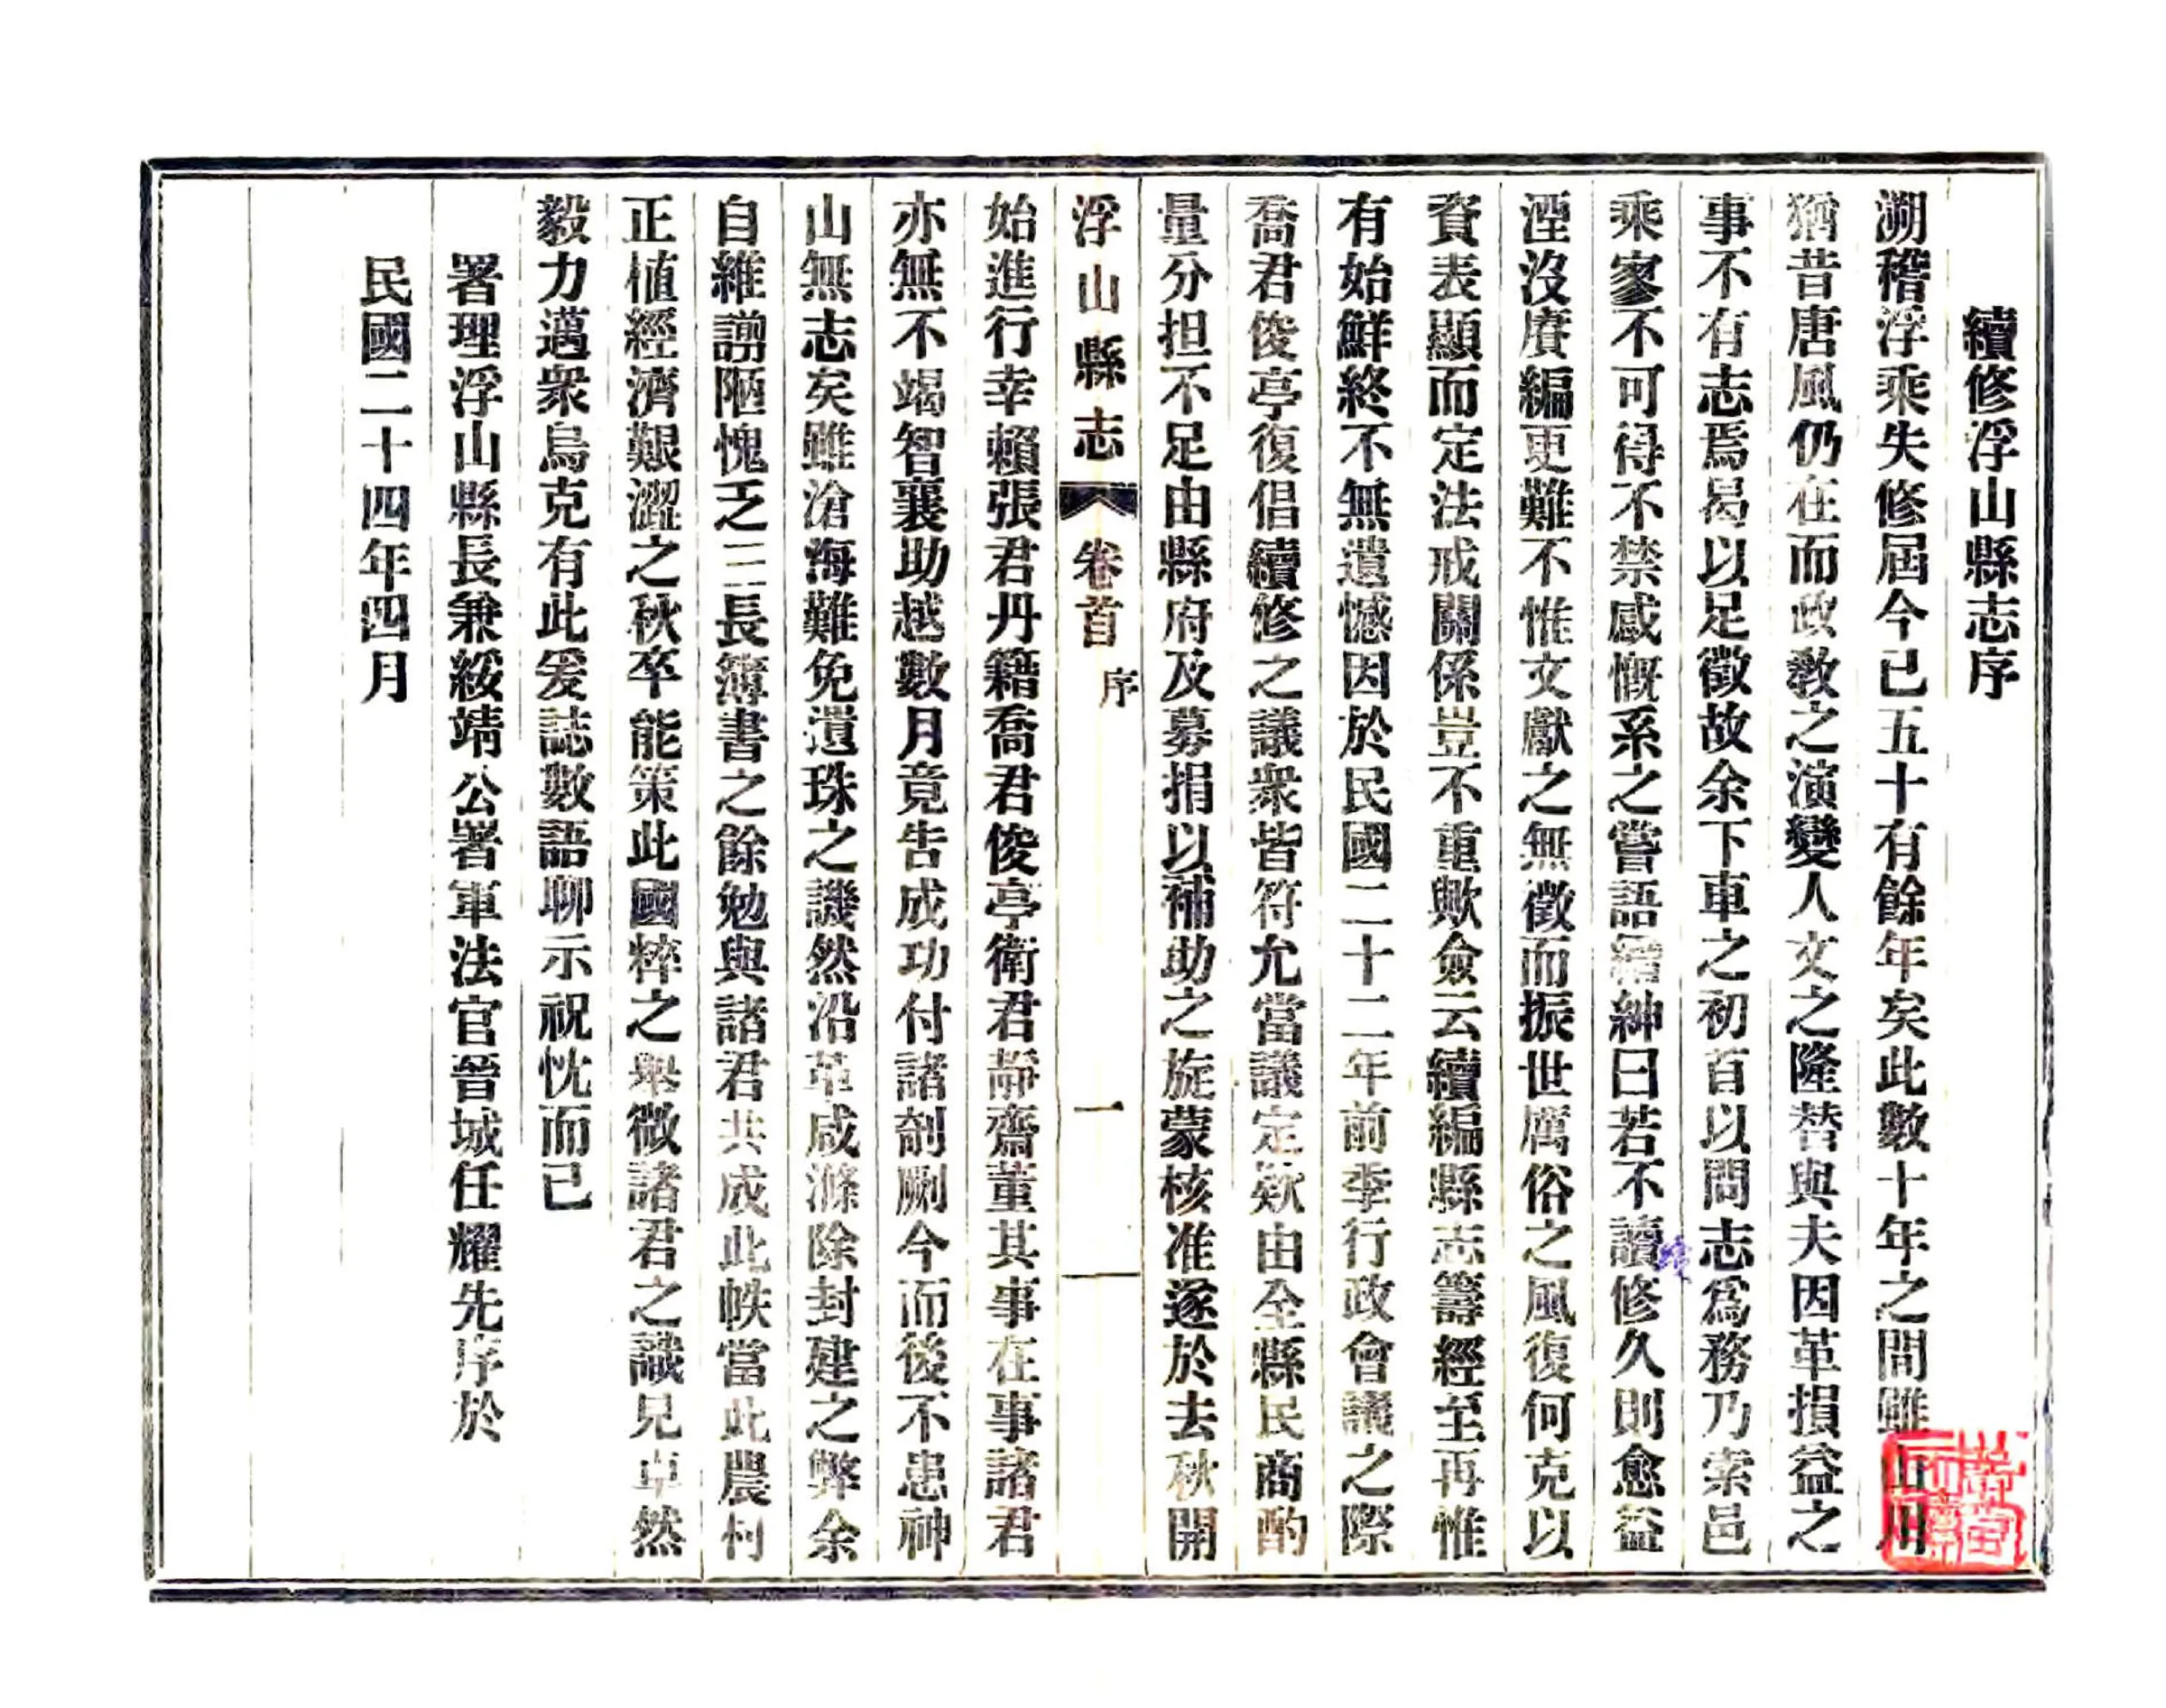 續修浮山縣志序
溯稽浮乘失修屆今已五十有餘年矣此數十年之間雖山川
猶昔唐風仍在而政教之演變人文之隆替與夫因革損益之
事不有志焉曷以足徵故余下車之初首以問志為務乃索邑
乘家不可得不禁感慨系之嘗語縉紳曰若不讀修久則愈益
續
湮沒賡編更難不惟文獻之無徵而振世厲俗之風復何克以
資表顯而定法戒關係豈不重歟僉云續編縣志籌經至再惟
有始鮮終不無遺憾因於民國二十二年前季行政會議之際
喬君俊亭復倡續修之議衆皆符允當議定欵由全縣民商酌
量分担不足由縣府及募捐以補助之旋蒙核准遂於去秋開
浮山縣志 卷首 序 一
始進行幸賴張君丹籍喬君俊亭衛君靜齋董其事在事諸君
亦無不竭智襄助越數月竟告成功付諸剞劂今而後不患神
山無志矣雖滄海難免遺珠之譏然沿革咸滌除封建之弊余
自維譾陋愧乏三長簿書之餘勉與諸君共成此帙當此農村
正植經濟艱澀之秋卒能策此國粹之舉微諸君之識見卓然
毅力邁衆烏克有此爰誌數語聊示祝忱而已
署理浮山縣長兼綏靖公署軍法官晉城任耀先序於
民國二十四年四月